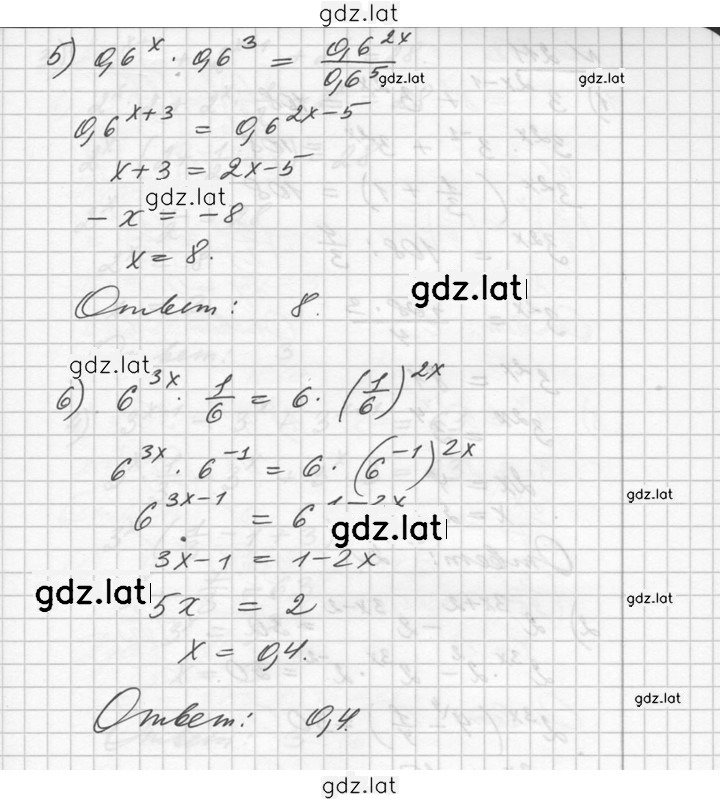 gdz.lat
5) 0,6^x · 0,6^3 = 0,6^{2x} / 0,6^5
gdz.lat gdz.lat
0,6^{x+3} = 0,6^{2x-5}
x+3 = 2x-5
gdz.lat
-x = -8
x = 8.
gdz.lat
Ответ: 8.
gdz.lat
6) 6^{3x} · 1/6 = 6 · (1/6)^{2x}
6^{3x} · 6^{-1} = 6 · (6^{-1})^{2x}
gdz.lat
6^{3x-1} = 6^{1-2x}
gdz.lat
3x-1 = 1-2x
gdz.lat gdz.lat
5x = 2
x = 0,4.
gdz.lat
Ответ: 0,4.
gdz.lat